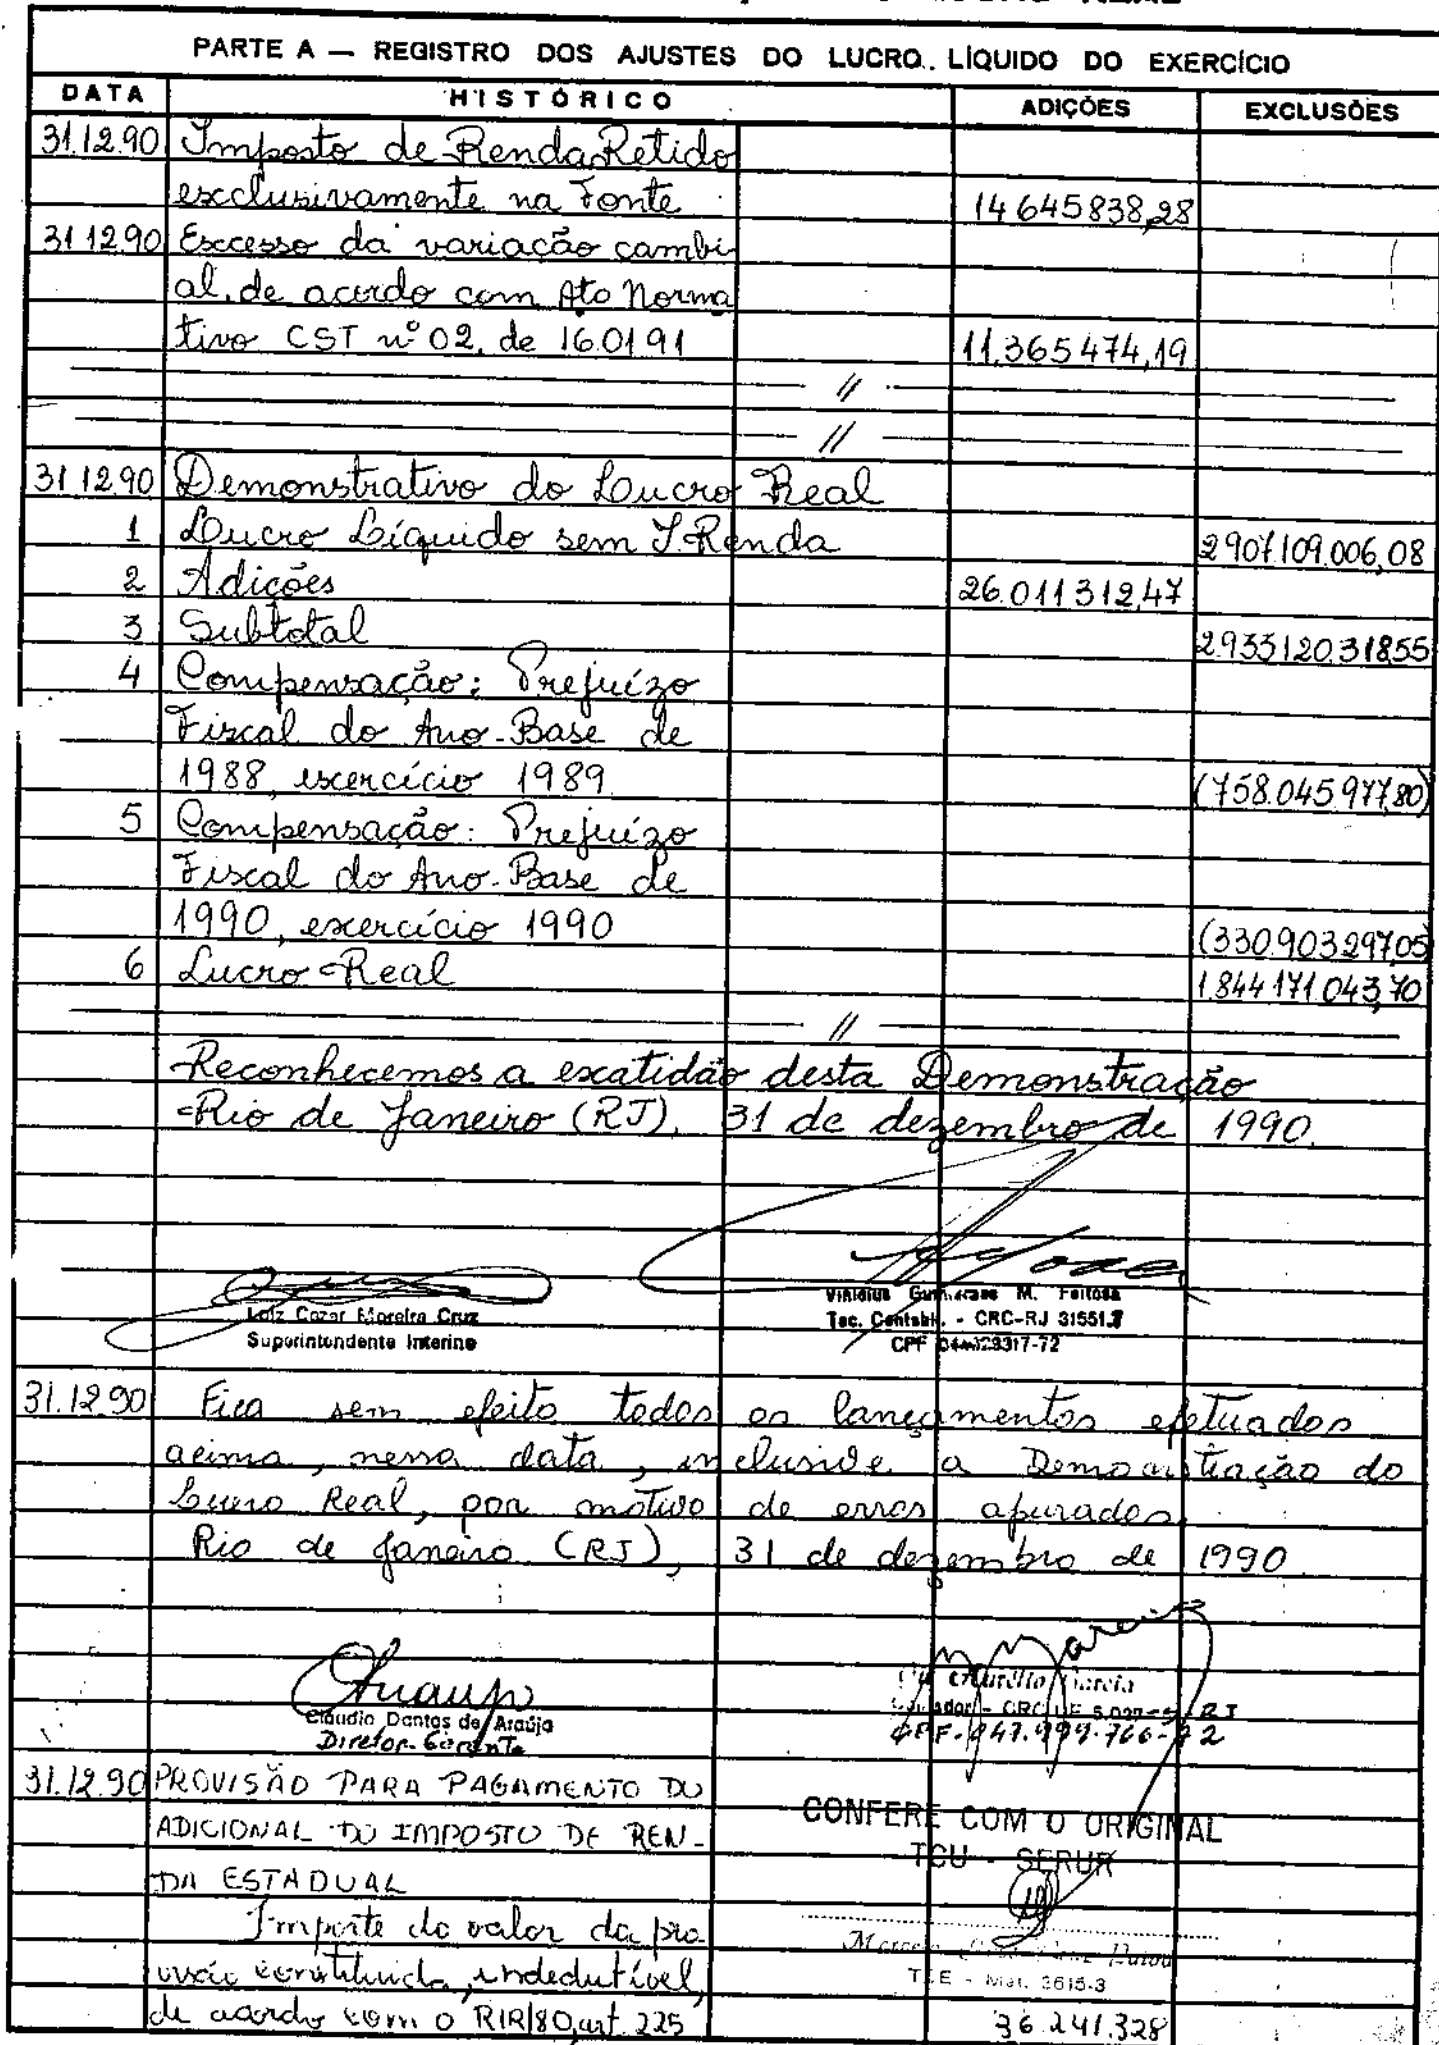 PARTE A — REGISTRO DOS AJUSTES DO LUCRO LÍQUIDO DO EXERCÍCIO
DATA HISTÓRICO ADIÇÕES EXCLUSÕES
31.12.90 Imposto de Renda Retido
exclusivamente na Fonte 14645838,28
31 12.90 Excesso da variação cambi
al, de acordo com Ato Norma
tivo CST nº 02, de 16.01.91 11.365474,19
//
//
31 12.90 Demonstrativo do Lucro Real
1 Lucro Líquido sem I.Renda 2907.109.006,08
2 Adições 26.011312,47
3 Subtotal 2.933120.318,55
4 Compensação: Prejuízo
Fiscal do Ano-Base de
1988, exercício 1989 (758.045.977,80)
5 Compensação: Prejuízo
Fiscal do Ano-Base de
1990, exercício 1990 (330.903.297,05)
6 Lucro Real 1.844 171.043,70
//
Reconhecemos a exatidão desta Demonstração
Rio de Janeiro (RJ), 31 de dezembro de 1990.
Luiz Cezar Moreira Cruz
Superintendente Interino
Vinicius Guimaraes M. Feitosa
Tec. Contabil. - CRC-RJ 31551.7
CPF
31.12.90 Fica sem efeito todos os lançamentos efetuados
acima, nessa data, inclusive a Demonstração do
Lucro Real, por motivo de erros apurados.
Rio de Janeiro (RJ), 31 de dezembro de 1990
Claudio Dantas de Araújo
Diretor-Gerente
Aurélio Garcia
Contador - CRC
CPF-
31.12.90 PROVISÃO PARA PAGAMENTO DO
ADICIONAL DO IMPOSTO DE REN-
DA ESTADUAL
CONFERE COM O ORIGINAL
TCU - SERUR
Importe do valor da pro
visão constituida, indedutível,
de acordo com o RIR/80, art. 225 36.241.328
Mat. 3615-3